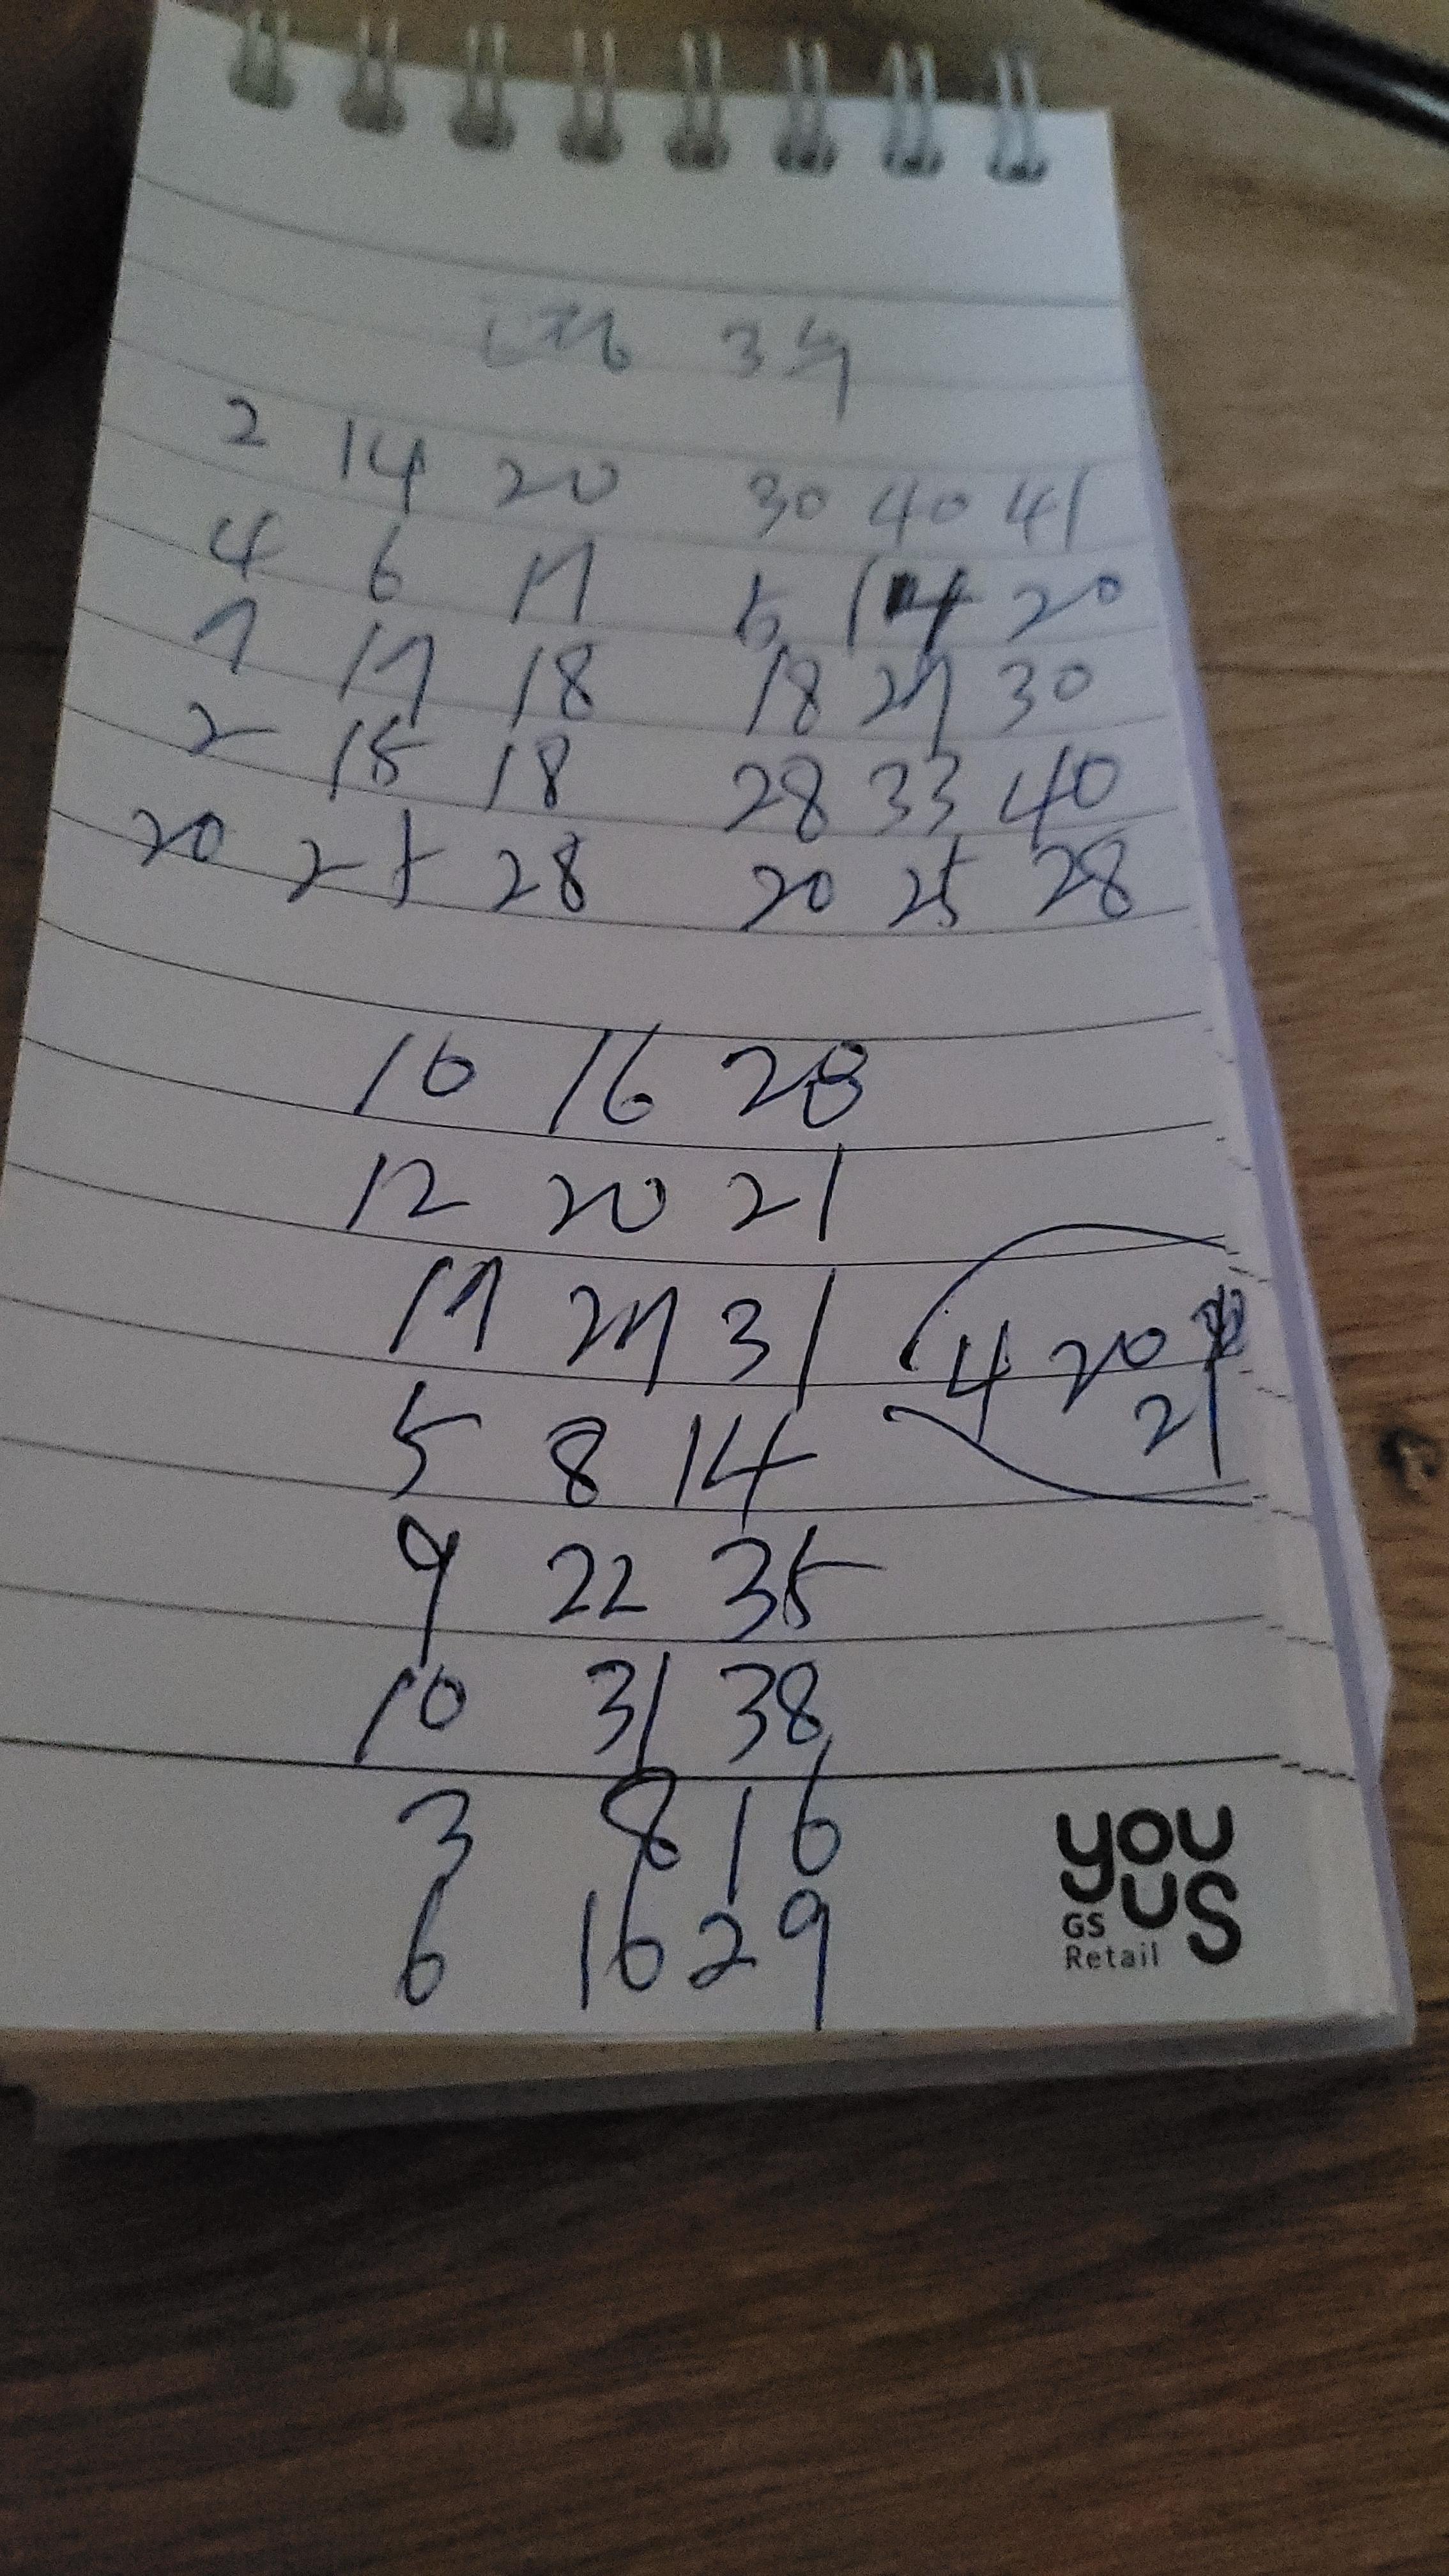 3수
2 14 20 30 40 41
4 6 17 5 14 20
7 17 18 18 27 30
2 15 18 28 33 40
20 25 28 20 25 28
10 16 28
12 20 21
17 27 31
4 20
21
5 8 14
9 22 35
10 31 38
3 8 16
6 16 29
you
us
GS
Retail